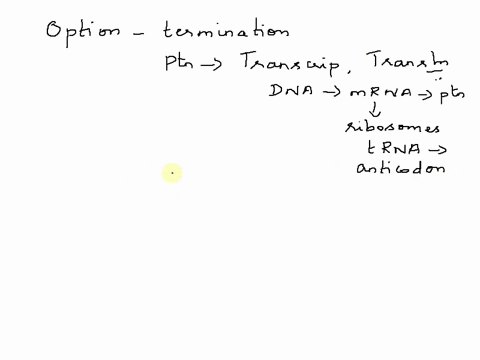 Option - termination
Ptn → Transcrip, Transln
DNA → mRNA → ptn
↓
ribosomes
tRNA →
anticodon